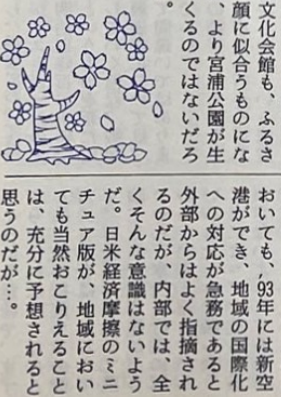 文化会館も、ふるさ
顔に似合うものにな
、より宮浦公園が生
くるのではないだろ
。
おいても、’93年には新空
港ができ、地域の国際化
への対応が急務であると
外部からはよく指摘され
るのだが、内部では、全
くそんな意識はないよう
だ。日米経済摩擦のミニ
チュア版が、地域におい
ても当然おこりえること
は、充分に予想されると
思うのだが…。